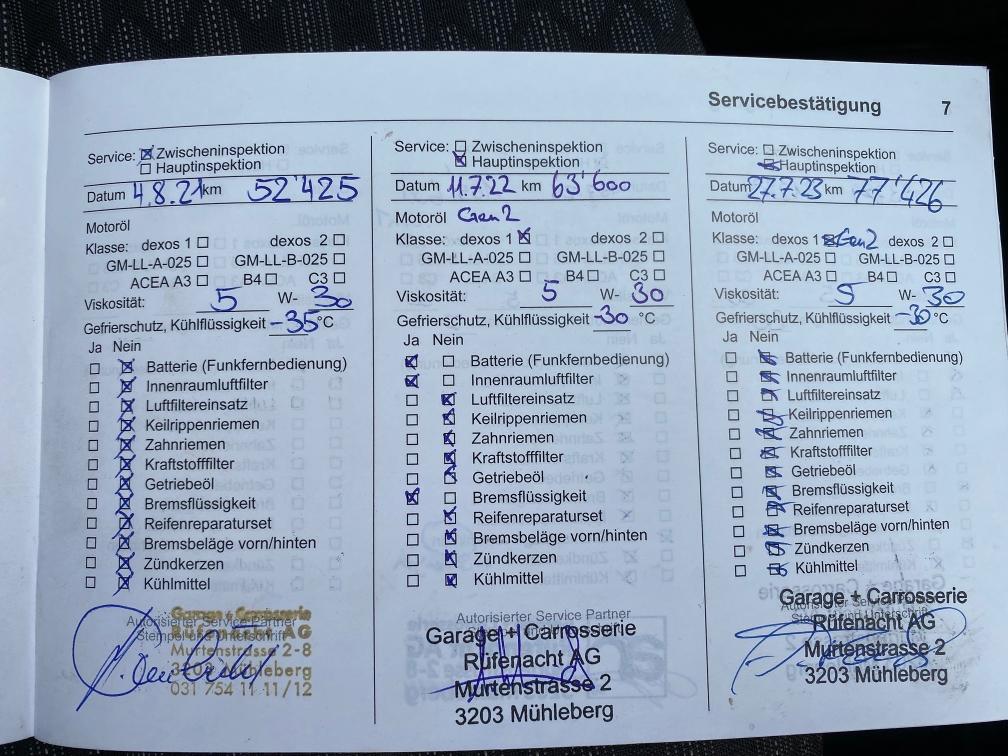 Servicebestätigung 7
Service: Zwischeninspektion
Hauptinspektion
Datum 4.8.21 km 52'425
Motoröl
Klasse: dexos 1 dexos 2
GM-LL-A-025 GM-LL-B-025
ACEA A3 B4 C3
Viskosität: 5 W- 30
Gefrierschutz, Kühlflüssigkeit -35 °C
Ja Nein
Batterie (Funkfernbedienung)
Innenraumluftfilter
Luftfiltereinsatz
Keilrippenriemen
Zahnriemen
Kraftstofffilter
Getriebeöl
Bremsflüssigkeit
Reifenreparaturset
Bremsbeläge vorn/hinten
Zündkerzen
Kühlmittel
Autorisierter Service Partner
Stempel und Unterschrift
Garage + Carrosserie
Rüfenacht AG
Murtenstrasse 2-8
3203 Mühleberg
031 754 11 11/12
Service: Zwischeninspektion
Hauptinspektion
Datum 11.7.22 km 63'600
Motoröl Gen2
Klasse: dexos 1 dexos 2
GM-LL-A-025 GM-LL-B-025
ACEA A3 B4 C3
Viskosität: 5 W- 30
Gefrierschutz, Kühlflüssigkeit -30 °C
Ja Nein
Batterie (Funkfernbedienung)
Innenraumluftfilter
Luftfiltereinsatz
Keilrippenriemen
Zahnriemen
Kraftstofffilter
Getriebeöl
Bremsflüssigkeit
Reifenreparaturset
Bremsbeläge vorn/hinten
Zündkerzen
Kühlmittel
Autorisierter Service Partner
Garage + Carrosserie
Rüfenacht AG
Murtenstrasse 2
3203 Mühleberg
Service: Zwischeninspektion
Hauptinspektion
Datum 27.7.23 km 77'426
Motoröl
Klasse: dexos 1 Gen2 dexos 2
GM-LL-A-025 GM-LL-B-025
ACEA A3 B4 C3
Viskosität: 5 W- 30
Gefrierschutz, Kühlflüssigkeit -30 °C
Ja Nein
Batterie (Funkfernbedienung)
Innenraumluftfilter
Luftfiltereinsatz
Keilrippenriemen
Zahnriemen
Kraftstofffilter
Getriebeöl
Bremsflüssigkeit
Reifenreparaturset
Bremsbeläge vorn/hinten
Zündkerzen
Kühlmittel
Garage + Carrosserie
Rüfenacht AG
Murtenstrasse 2
3203 Mühleberg